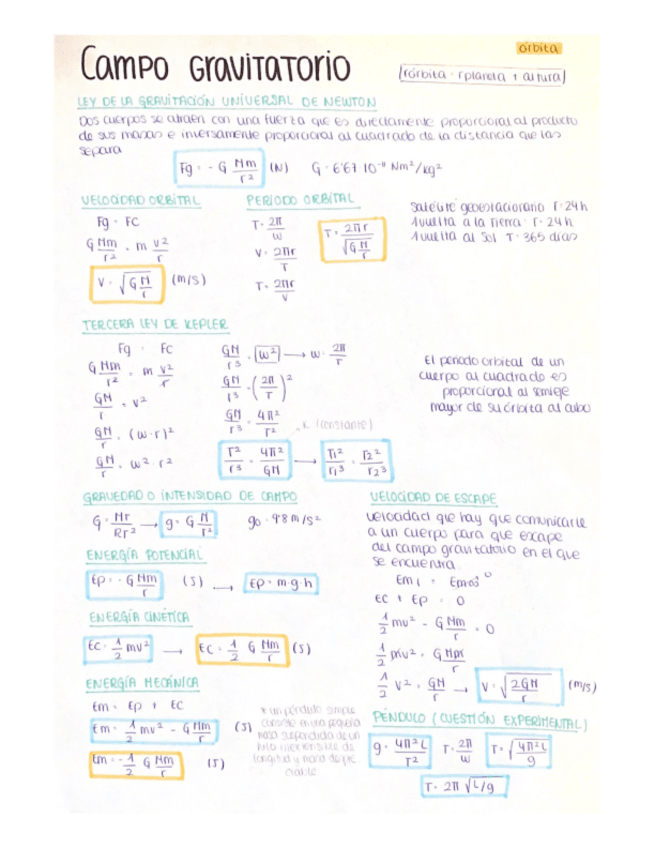 órbita
CAMPO GRAVITATORIO
rórbita = rplaneta + altura
LEY DE LA GRAVITACIÓN UNIVERSAL DE NEWTON
Dos cuerpos se atraen con una fuerza que es directamente proporcional al producto
de sus masas e inversamente proporcional al cuadrado de la distancia que las
separa
Fg = - G Mm/r² (N) G = 6'67 · 10⁻¹¹ Nm²/kg²
VELOCIDAD ORBITAL
Fg = FC
G Mm/r² = m v²/r
V = √(G M/r) (m/s)
PERIODO ORBITAL
T = 2π/ω
V = 2πr/T
T = 2πr/V
T = 2πr/√(G M/r)
Satélite geoestacionario T = 24h
1 vuelta a la Tierra = T = 24h
1 vuelta al Sol T = 365 días
TERCERA LEY DE KEPLER
Fg = FC
G Mm/r² = m v²/r
GM/r = v²
GM/r = (ω·r)²
GM/r = ω² · r²
GM/r³ = ω² → ω = 2π/T
GM/r³ = (2π/T)²
GM/r³ = 4π²/T²
K (constante)
T²/r³ = 4π²/GM → T1²/r1³ = T2²/r2³
El periodo orbital de un
cuerpo al cuadrado es
proporcional al semieje
mayor de su órbita al cubo
GRAVEDAD O INTENSIDAD DE CAMPO
G = Mr/Rr² → g = G M/r² g0 = 9'8 m/s²
ENERGÍA POTENCIAL
Ep = - G Mm/r (J) → Ep = m·g·h
ENERGÍA CINÉTICA
Ec = 1/2 mv² → Ec = 1/2 G Mm/r (J)
ENERGÍA MECÁNICA
Em = Ep + Ec
Em = 1/2 mv² - G Mm/r (J)
Em = - 1/2 G Mm/r (J)
* un péndulo simple
consiste en una pequeña
masa suspendida de un
hilo inextensible de
longitud y masa despre
ciable
VELOCIDAD DE ESCAPE
Velocidad que hay que comunicarle
a un cuerpo para que escape
del campo gravitatorio en el que
se encuentra
Em1 = Em∞ 0
Ec + Ep = 0
1/2 mv² - G Mm/r = 0
1/2 mv² = G Mm/r
1/2 v² = GM/r → V = √(2GM/r) (m/s)
PÉNDULO (CUESTIÓN EXPERIMENTAL)
g = 4π²L/T² T = 2π/ω T = √(4π²L/g)
T = 2π √L/g